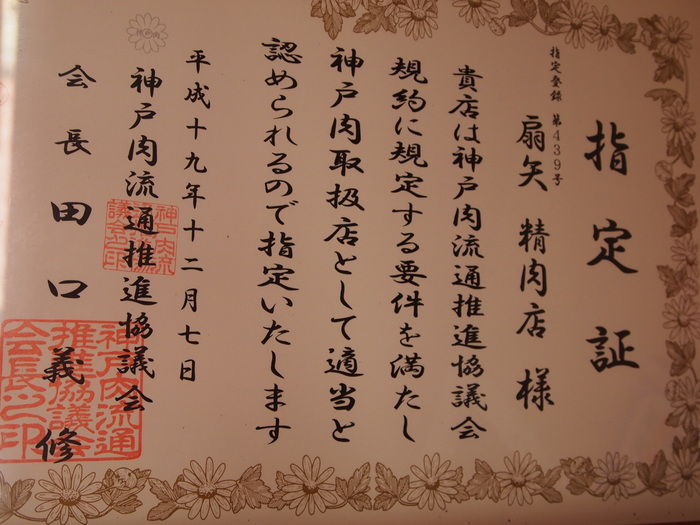 指定証
指定登録 第439号
扇矢 精肉店 様
貴店は神戸肉流通推進協議会
規約に規定する要件を満たし
神戸肉取扱店として適当と
認められるので指定いたします
平成十九年十二月七日
神戸肉流通推進協議会
会長 田口 義修
神戸肉流通推進協議会之印
神戸肉流通推進協議会会長之印